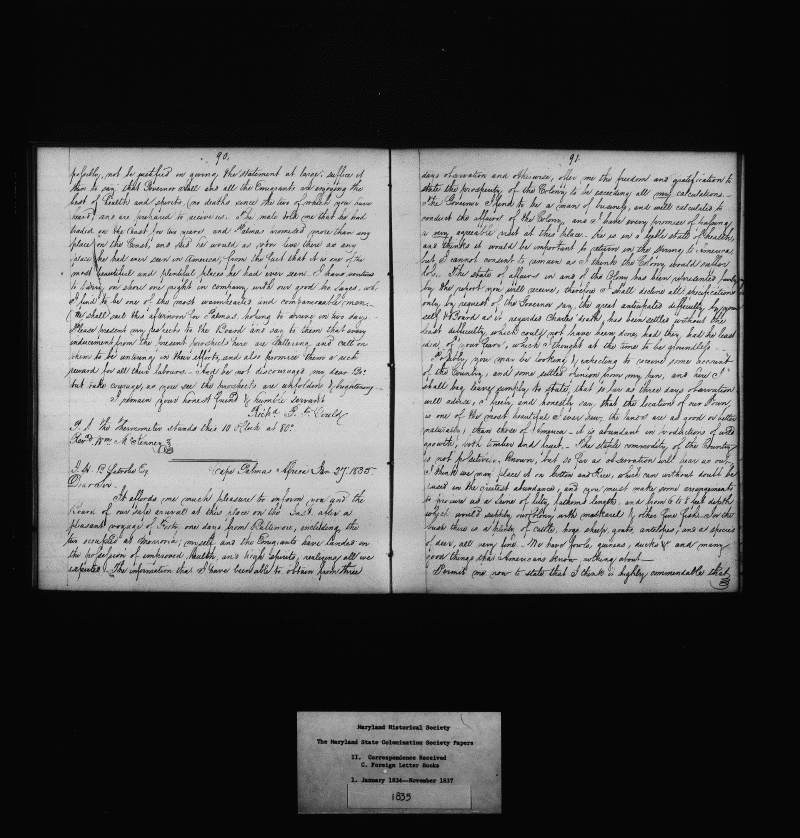 90.
possibly, not be justified in giving the statement at large; suffice it
then to say that Governor Hall and all the Emigrants are enjoying the
best of Health and spirits, (no deaths since the two of which you have
heard) and are prepared to receive us. The male told me that he had
traded on the Coast for ten years, and Palmas promised more than any
place on the Coast, and that he would as soon live there as any
place he had ever seen in America; from the fact that it is one of the
most beautiful and plentiful places he had ever seen. I have ventured
to tarry on shore one night in company with our good
I find to be one of the most warmhearted and companionable men.
We shall sail this afternoon for Palmas hoping to arrive in two days.
Please present my respects to the Board and say to them that every
inducement from the present prospects here are flattering, and call on
them to be untiring in their efforts, and also promise them a rich
reward for all their labours. And be not discouraged my dear Br.
but take courage, as you see the prospects are unfolding & brightening.
I remain your honest friend & humble servant
P. S. The Thermometer stands this 10 Oclock at 80°.
Revd. Wm. McKenney
J. H. B. Latrobe Esq. Cape Palmas Africa Jan. 27. 1835.
Dear Sir.
It affords me much pleasure to inform you and the
Board of our safe arrival at this place on the Inst. after a
pleasant voyage of Forty one days from Baltimore, excluding the
ten occupied at Monrovia; myself and the Emigrants have landed in
the possession of improved Health, and high Spirits, realizing all we
expected. The information that I have been able to obtain from three
91.
days observation and otherwise, offer me the freedom and gratification to
state the prosperity of the Colony to be exceeding all my calculations.
The Governor I find to be a man of business, and well calculated to
conduct the affairs of the Colony, and I have every promise of having
a very agreeable visit at this place. He is in a feeble state of health,
and thinks it would be important to return in the Spring to America
but I cannot consent to remain as I think the Colony would suffer
The state of affairs in and of the Colony has been represented
by the report you will receive, therefore I shall decline all specifications
only by request of the Governor say, the great anticipated difficulty by
& Board as it regarded Charles' death, has been settled without the
least difficulty, which could not have been done, had they had the least
idea of your fears, which I thought at the time to be groundless.
Possibly you may be looking & expecting to receive some account
of the Country, and some settled opinion from my pen, and here I
shall beg leave simply to state, that so far as three days observation
will advise, I freely and honestly can, that the location of our Town
is one of the most beautiful I ever saw, the lands are as good or better
naturally, than those of America. It is abundant in productions of wild
growth, both timber and fruit. The staple commodity of the Country
is not positively known, but so far as observation will bear us out,
I think we may place it in Cotton and Rice, which can without doubt be
raised in the greatest abundance, and you must make some arrangements
to procure us a Seine of fifty fathoms length, and from 6 to 8 feet depth
which would supply our Colony with mackerel & other fine fish. In the
bush there is a plenty of cattle, hogs, sheep, goats, antelopes, and a species
of deer, all very fine. We have fowls, guineas, ducks & and many
good things that Americans know nothing about.
Permit me now to state that I think is highly commendable that
Maryland Historical Society
The Maryland State Colonization Society Papers
II. Correspondence Received
C. Foreign Letter Books
1. January 1834--November 1837
1835